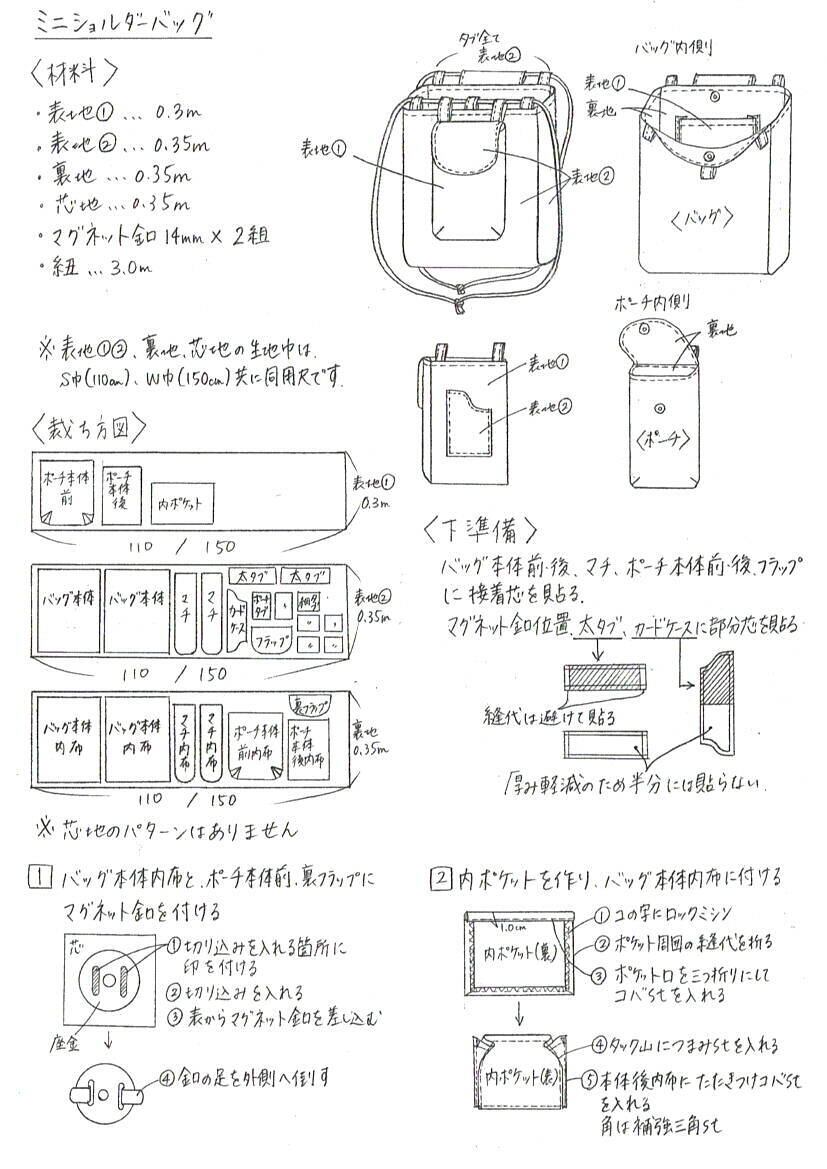 ミニショルダーバッグ
〈材料〉
・表地① … 0.3m
・表地② … 0.35m
・裏地 … 0.35m
・芯地 … 0.35m
・マグネット金口 14mm × 2組
・紐 … 3.0m
※表地①②、裏地、芯地の生地巾は、
S巾(110cm)、W巾(150cm)共に同用尺です.
タブ全て
表地②
表地①
表地②
バッグ内側
表地①
裏地
〈バッグ〉
表地①
表地②
ポーチ内側
裏地
〈ポーチ〉
〈裁ち方図〉
ポーチ本体
前
ポーチ
本体
後
内ポケット
表地①
0.3m
110 / 150
バッグ本体
バッグ本体
マチ
マチ
太タブ
太タブ
カード
ケース
ポーチ
タブ
〃
細タブ
フラップ
〃
〃
〃
〃
表地②
0.35m
110 / 150
バッグ本体
内布
バッグ本体
内布
マチ内布
マチ内布
ポーチ本体
前内布
裏フラップ
ポーチ
本体
後内布
裏地
0.35m
110 / 150
※芯地のパターンはありません
〈下準備〉
バッグ本体前・後、マチ、ポーチ本体前・後、フラップ
に接着芯を貼る.
マグネット金口位置、太タブ、カードケースに部分芯を貼る
縫代は避けて貼る
厚み軽減のため半分には貼らない.
1 バッグ本体内布と、ポーチ本体前、裏フラップに
マグネット金口を付ける
芯
座金
①切り込みを入れる箇所に
印を付ける
②切り込みを入れる
③表からマグネット金口を差し込む
④金口の足を外側へ倒す
2 内ポケットを作り、バッグ本体内布に付ける
1.0cm
内ポケット(裏)
①コの字にロックミシン
②ポケット周囲の縫代を折る
③ポケット口を三つ折りにして
コバstを入れる
内ポケット(表)
④タック山につまみstを入れる
⑤本体後内布にたたきつけコバst
を入れる
角は補強三角st